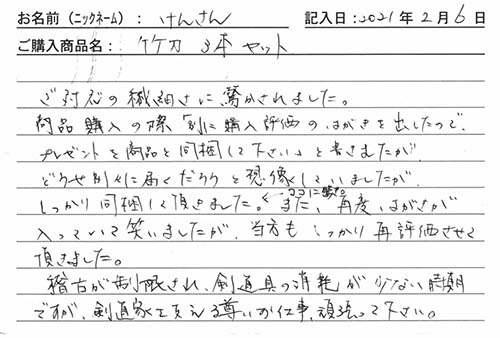 お名前（ニックネーム）： けんさん 記入日：2021年2月6日
ご購入商品名： 竹刀 3本セット
ご対応の繊細さに驚かされました。
商品購入の際「別に購入評価のはがきを出したので、
プレゼントを商品と同梱して下さい」と書きましたが、
どうせ別々に届くだろうと想像していましたが、
しっかり同梱して頂きました。←ココに感動。また、再度、はがきが
入っていて笑いましたが、当方もしっかり再評価させて
頂きました。
稽古が制限され、剣道具の消耗が少ない時期
ですが、剣道家を支える尊いお仕事、頑張って下さい。